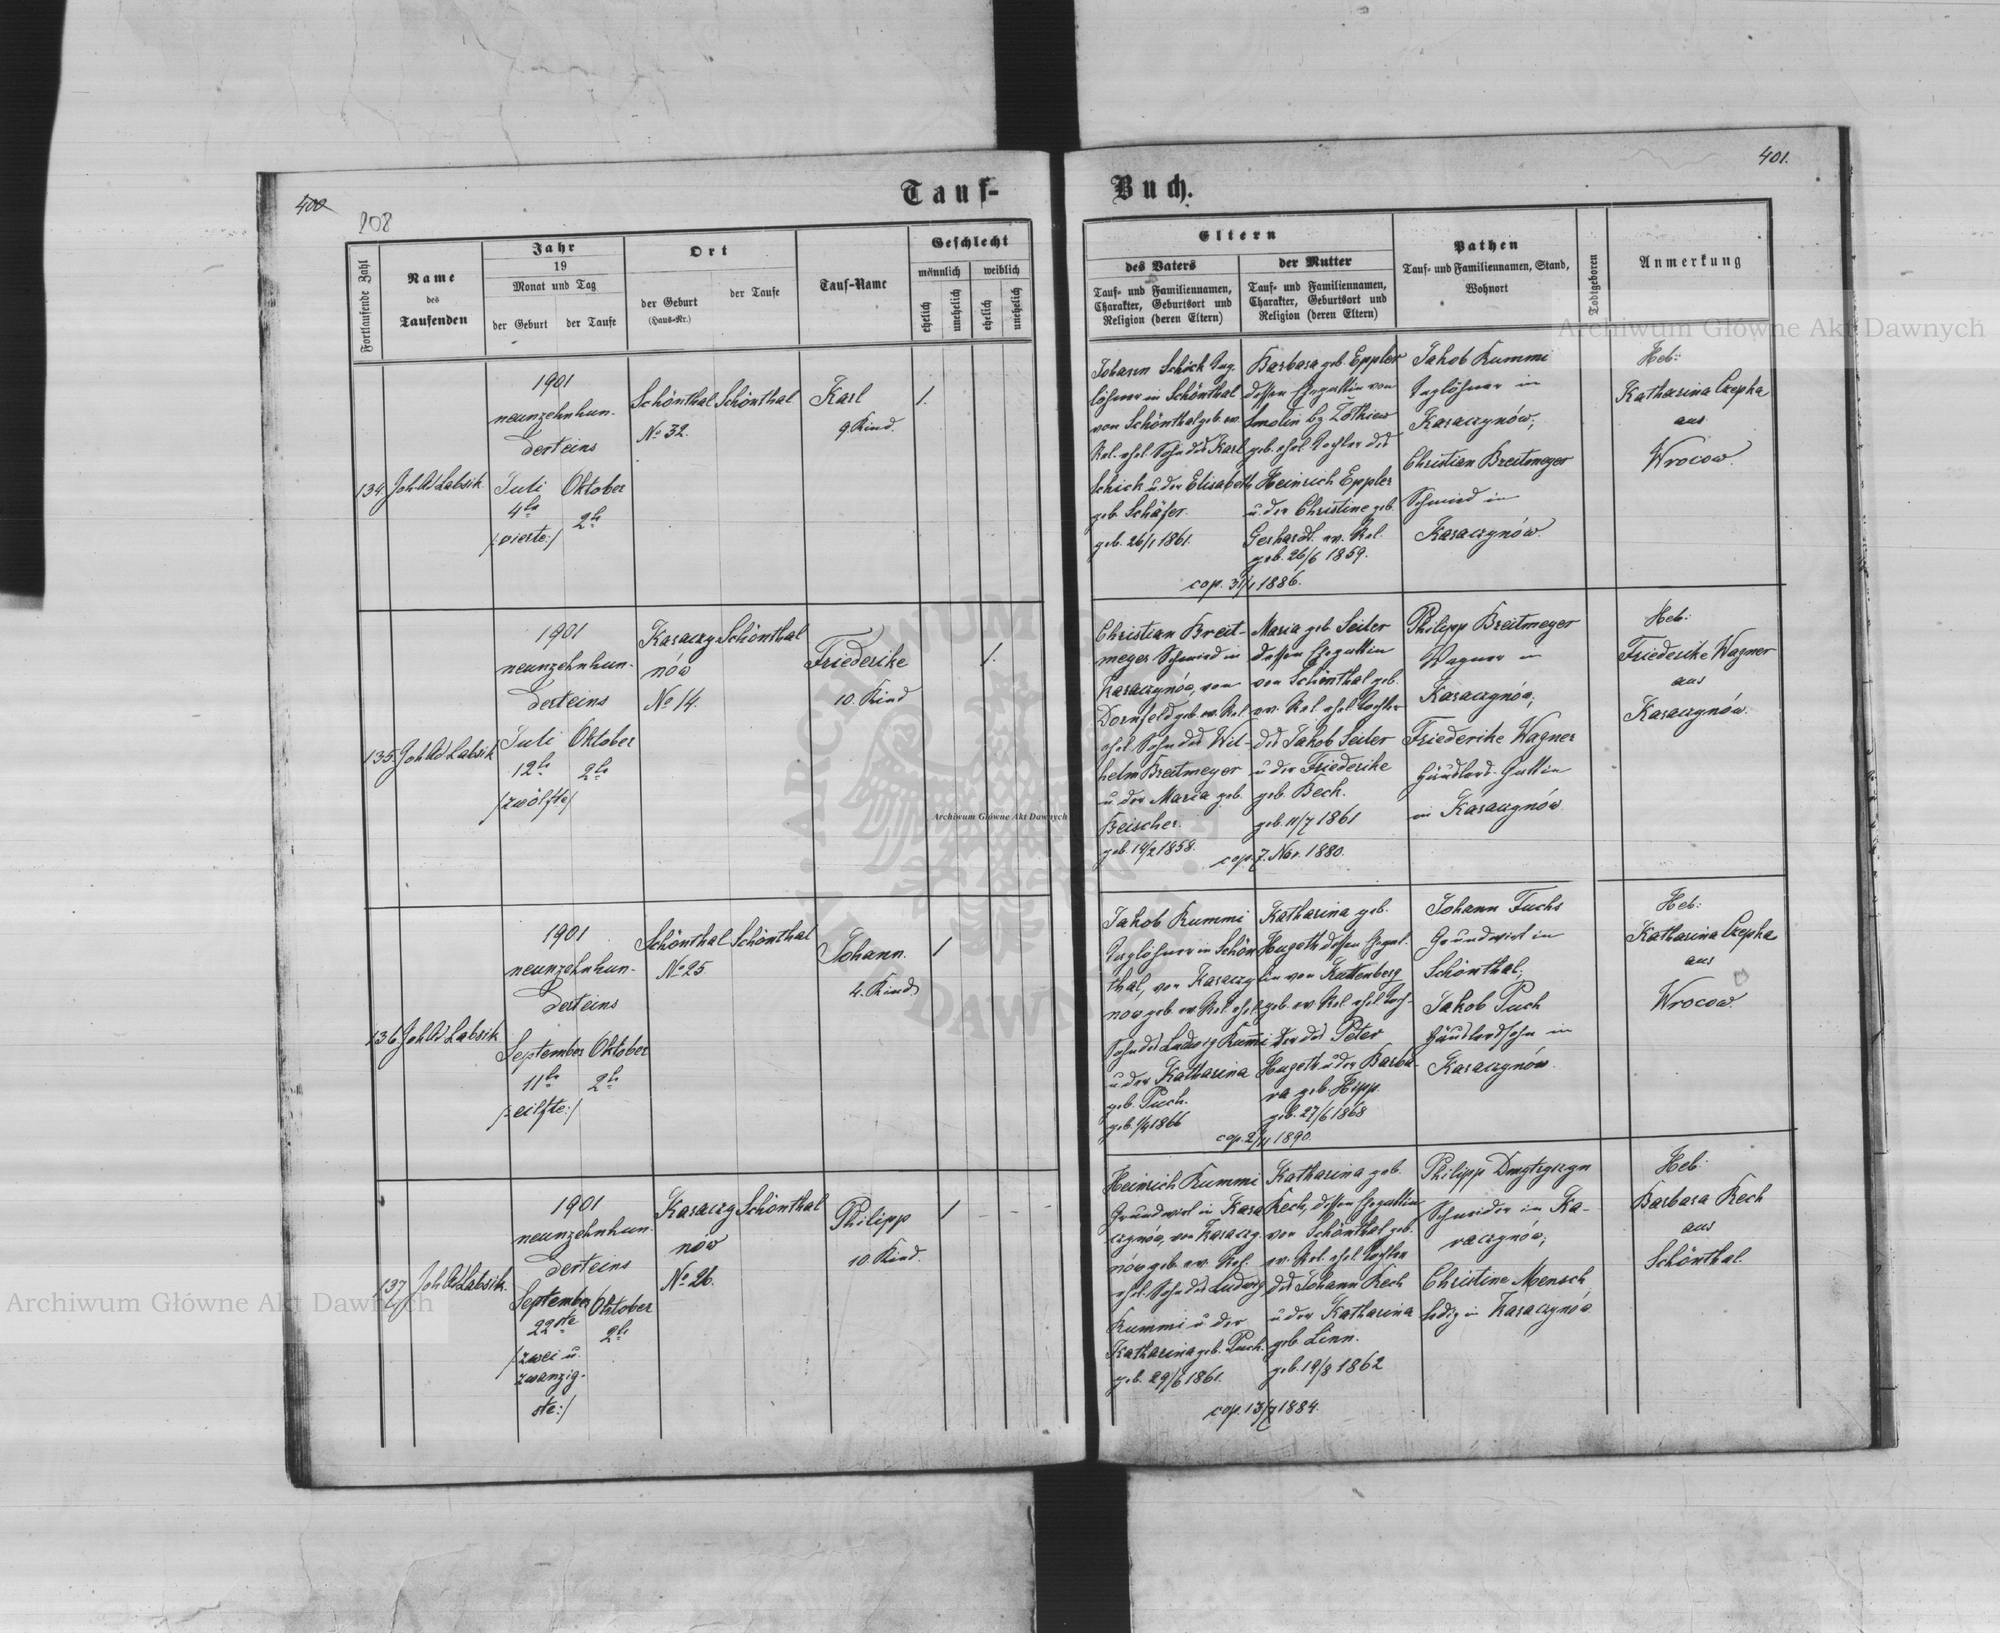 400
208
Tauf-
Fortlaufende Zahl
Name
des
Taufenden
Jahr
19
Monat und Tag
der Geburt
der Taufe
Ort
der Geburt
(Haus-Nr.)
der Taufe
Tauf-Name
Geschlecht
männlich
weiblich
ehelich
unehelich
ehelich
unehelich
134.
Joh Ad Labsik
1901
neunzehnhun-
derteins
Juli
4te
/:vierte:/
Oktober
2te
Schönthal
No 32.
Schönthal
Karl
9. Kind.
1.
135.
Joh Ad Labsik
1901
neunzehnhun-
derteins
Juli
12te
/zwölfte/
Oktober
2te
Karaczy
nów
No 14.
Schönthal
Friederike
10. Kind
1.
136.
Joh Ad Labsik
1901
neunzehnhun-
derteins
September
11te
/:eilfte:/
Oktober
2te
Schönthal
No 25
Schönthal
Johann.
4. Kind
1
137
Joh Ad Labsik.
1901
neunzehnhun-
derteins
September
22ste
/zwei u.
zwanzig-
ste:/
Oktober
2te
Karaczy
nów
No 26.
Schönthal
Philipp
10. Kind.
1
401.
Buch.
Eltern
des Vaters
Tauf- und Familiennamen,
Charakter, Geburtsort und
Religion (deren Eltern)
der Mutter
Tauf- und Familiennamen,
Charakter, Geburtsort und
Religion (deren Eltern)
Pathen
Tauf- und Familiennamen, Stand,
Wohnort
Todtgeboren
Anmerkung
Johann Schick Tag-
löhner in Schönthal
von Schönthal geb. ev.
Rel. ehel Sohn des Karl
Schick u. der Elisabeth
geb. Schäfer.
geb. 26/1 1861.
Barbara geb. Eppler
dessen Ehegattin von
Smolin bz Zółkiew
geb. ehel. Tochter des
Heinrich Eppler
u. der Christine geb.
Gerhardt. ev. Rel.
geb. 26/6 1859.
1886.
Jakob Kummi
Taglöhner in
Karaczynów;
Christian Breitmeyer
Schmied in
Karaczynów.
Heb:
Katharina Czepka
aus
Wrocow.
Christian Breit-
meyer Schmied in
Karaczynów, von
Dornfeld geb. ev. Rel
ehel. Sohn des Wil-
helm Breitmeyer
u. der Maria geb.
Beischer.
geb. 14/2 1858.
Maria geb. Seiler
dessen Ehegattin
von Schönthal geb.
ev. Rel. ehel Tochter
des Jakob Seiler
u. der Friederike
geb. Bech.
geb. 11/7 1861
cop. 7. Nov. 1880.
Philipp Breitmeyer
Wagner in
Karaczynów,
Friederike Wagner
Häuslers-Gattin
in Karaczynów.
Heb:
Friederike Wagner
aus
Karaczynów.
Jakob Kummi
Taglöhner in Schön
thal, von Karaczy
now geb. ev. Rel. ehel
Sohn des Ludwig Kummi
u. der Katharina
geb. Puch.
1866
Katharina geb.
Hugeth dessen Ehegat-
tin von Kattenberg
geb. ev. Rel. ehel. Toch-
ter des Peter
Hugeth u. der Barba-
ra geb. Hipp.
geb. 27/6 1868
cop. 2/11 1890.
Johann Fuchs
Grundwirt in
Schönthal;
Jakob Puch
Häuslerssohn in
Karaczynów.
Heb:
Katharina Czepka
aus
Wrocow.
Heinrich Kummi
Grundwirt in Kara
czynów, von Karaczy-
nów geb. ev. Rel.
ehel. Sohn des Ludwig
Kummi u. der
Katharina geb. Puch.
geb. 29/6 1861.
Katharina geb.
Kech, dessen Ehegattin
von Schönthal geb.
ev. Rel. ehel. Tochter
des Johann Kech
u. der Katharina
geb. Linn.
geb. 19/8 1862
cop. 13/7 1884.
Philipp Dmytryszyn
Schneider in Ka-
raczynów;
Christine Mensch
ledig in Karaczynów
Heb:
Barbara Kech
aus
Schönthal.
Archiwum Główne Akt Dawnych
Archiwum Główne Akt Dawnych
Archiwum Główne Akt Dawnych